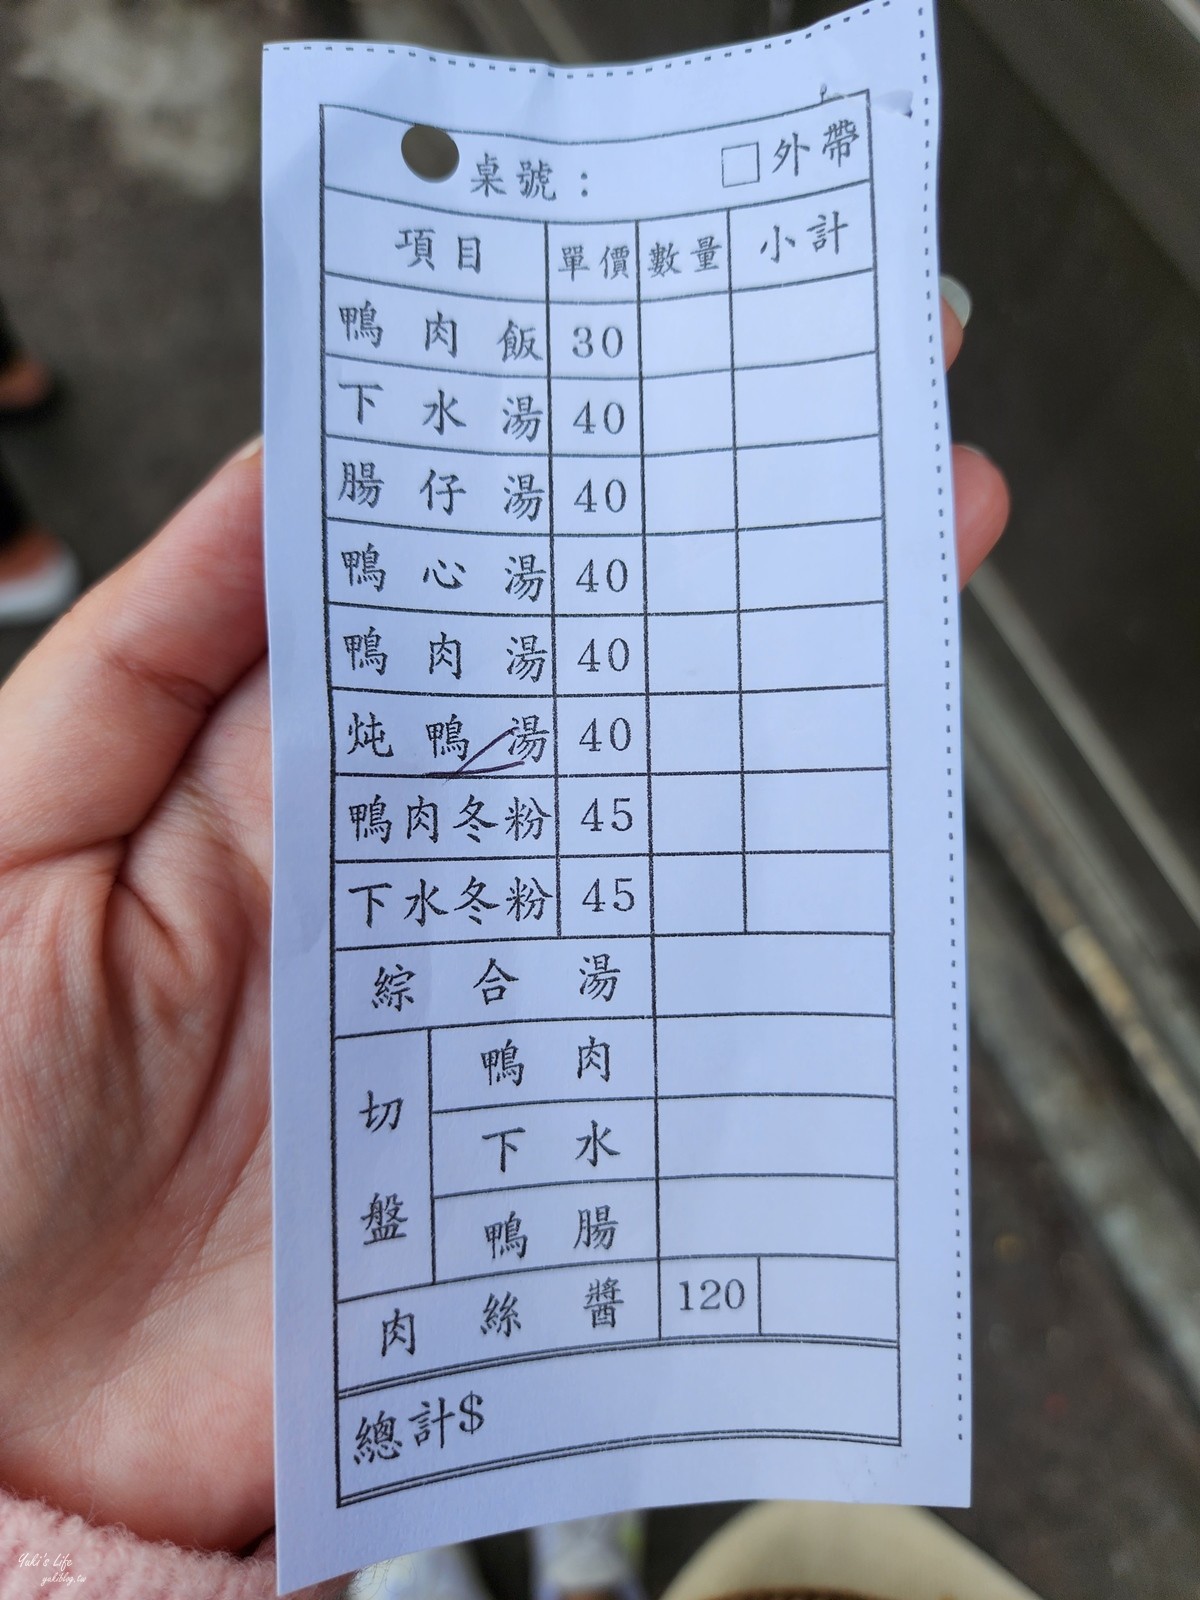 桌號： □外帶
項目 單價 數量 小計
鴨肉飯 30
下水湯 40
腸仔湯 40
鴨心湯 40
鴨肉湯 40
炖鴨湯 40
鴨肉冬粉 45
下水冬粉 45
綜合湯
切盤
鴨肉
下水
鴨腸
肉絲醬 120
總計$
Yuki's Life
yukiblog.tw